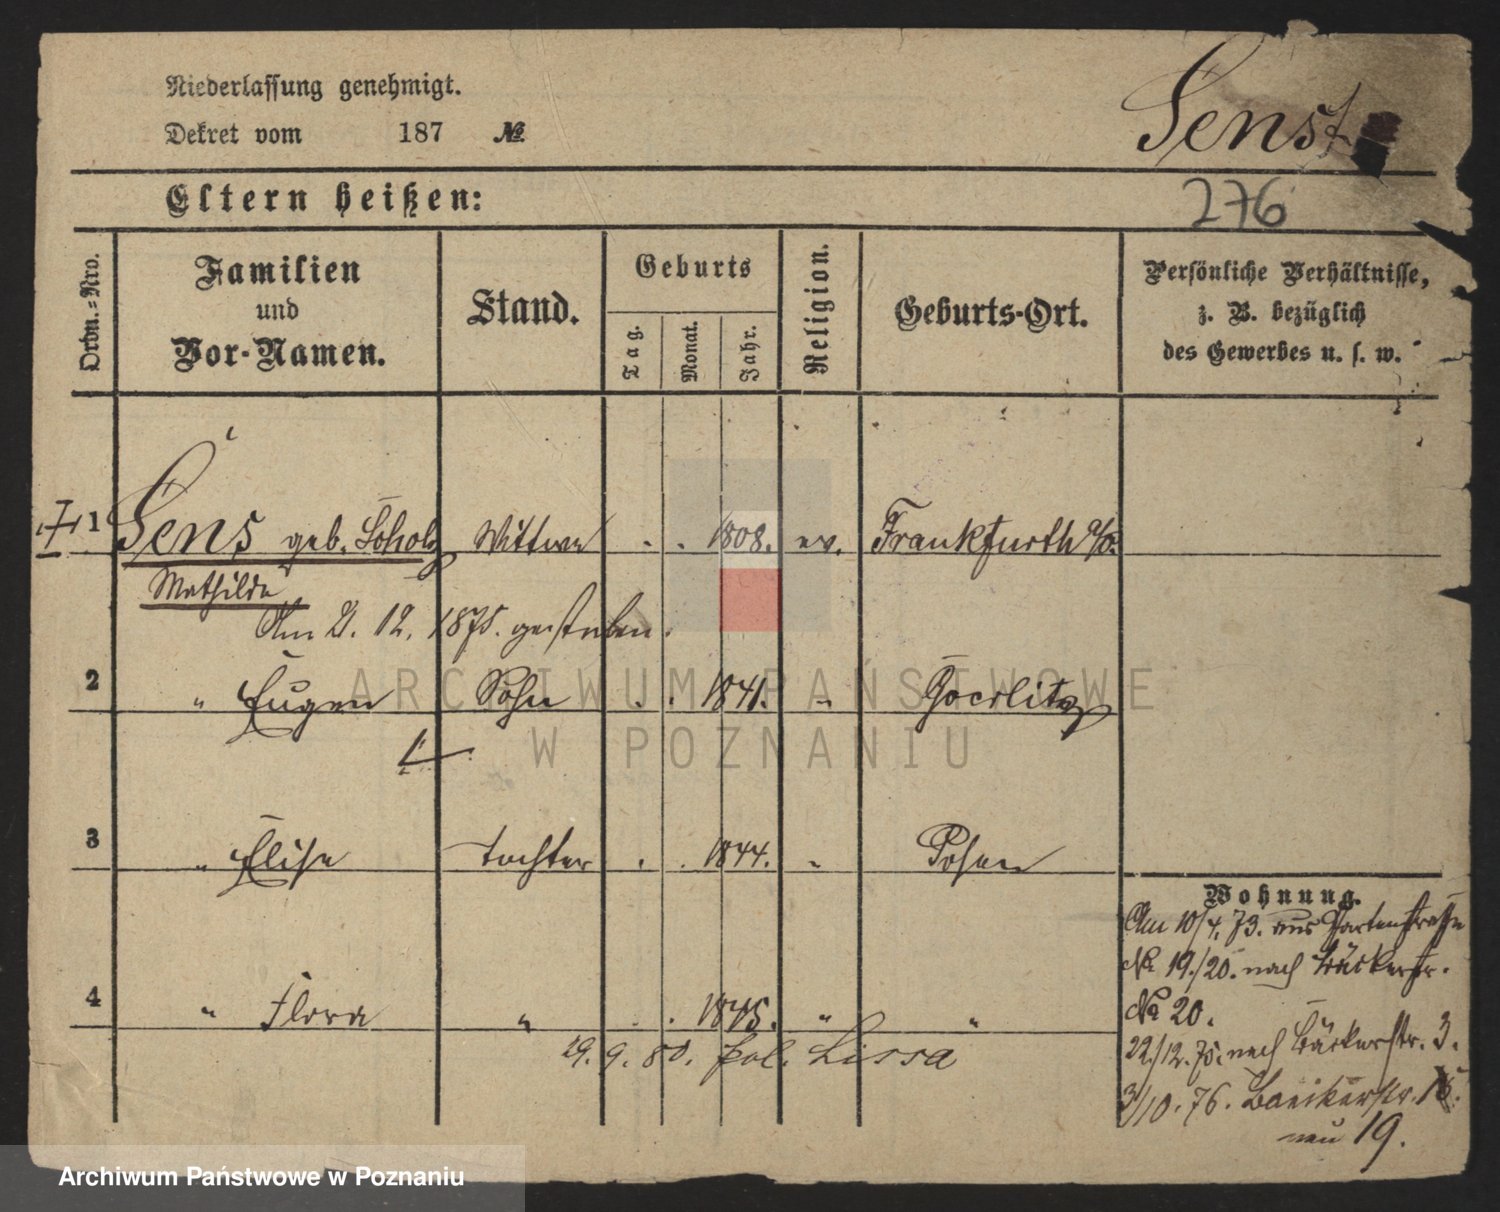 Niederlassung genehmigt.
Dekret vom 187 №
Sens
276
Eltern heißen:
Ordn.=Nro.
Familien und Vor-Namen.
Stand.
Geburts
Tag.
Monat.
Jahr.
Religion.
Geburts-Ort.
Persönliche Verhältnisse,
z. B. bezüglich
des Gewerbes u. s. w.
1 Sens geb. Scholz Wittwe . . 1808. ev. Frankfurth a/o.
Mathilde
Am 2. 12. 1875. gestorben.
2 " Eugen Sohn . . 1841. " Goerlitz
3 " Elise Tochter . . 1844. " Posen
4 " Flora " . . 1845. " "
29. 9. 80. pol. Lissa
Wohnung.
Am 10/4. 73. aus Gartenstraße
No 19./20. nach Bäckerstr.
No 20.
22./12. 75. nach Bäckerstr. 3.
3/10. 76. Baeckerstr.
neu 19.
ARCHIWUM PAŃSTWOWE
W POZNANIU
Archiwum Państwowe w Poznaniu